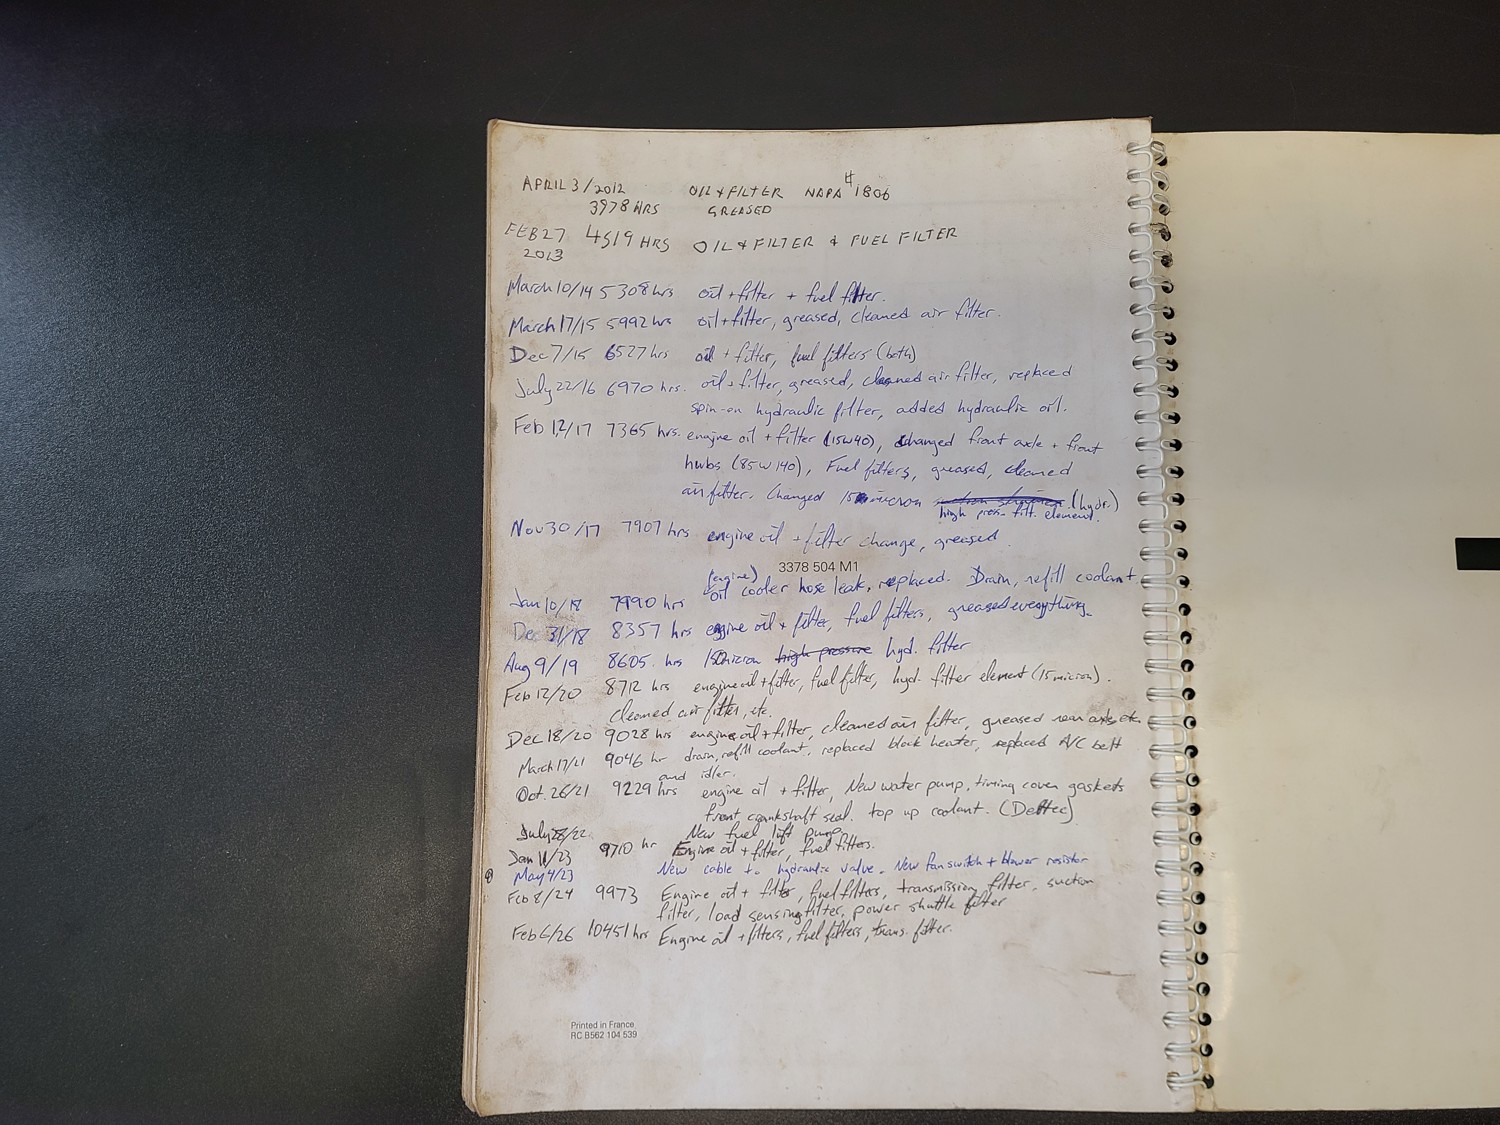 APRIL 3/2012 OIL & FILTER NAPA #1806
3978 HRS GREASED
FEB 27 4519 HRS OIL & FILTER & FUEL FILTER
2013
March 10/14 5308 hrs oil + filter + fuel filter.
March 17/15 5992 hrs oil + filter, greased, cleaned air filter.
Dec 7/15 6527 hrs oil + filter, fuel filters (both)
July 22/16 6970 hrs. oil + filter, greased, cleaned air filter, replaced
spin-on hydraulic filter, added hydraulic oil.
Feb 12/17 7365 hrs. engine oil + filter (15W40), changed front axle + front
hubs (85W140), Fuel filters, greased, cleaned
air filter. Changed 15 micron (hydr.)
high press. filt. element.
Nov 30/17 7907 hrs engine oil + filter change, greased.
3378 504 M1
(engine)
Jan 10/18 7990 hrs oil cooler hose leak, replaced. Drain, refill coolant
Dec 31/18 8357 hrs engine oil + filter, fuel filters, greased everything.
Aug 9/19 8605 hrs 150 micron high pressure hyd. filter
Feb 12/20 8712 hrs engine oil + filter, fuel filter, hyd. filter element (15 micron).
cleaned air filter, etc.
Dec 18/20 9028 hrs engine oil + filter, cleaned air filter, greased rear axle etc.
March 17/21 9046 hr drain, refill coolant, replaced block heater, replaced A/C belt
and idler.
Oct. 26/21 9229 hrs engine oil + filter, New water pump, timing cover gaskets
front crankshaft seal. top up coolant. (Deltec)
July 28/22 New fuel lift pump
Jan 11/23 9710 hr Engine oil + filter, fuel filters.
May 4/23 New cable to hydraulic valve. New fan switch + blower resistor
Feb 8/24 9973 Engine oil + filter, fuel filters, transmission filter, suction
filter, load sensing filter, power shuttle filter
Feb 6/26 10451 hrs Engine oil + filters, fuel filters, trans. filter.
Printed in France
RC B562 104 539